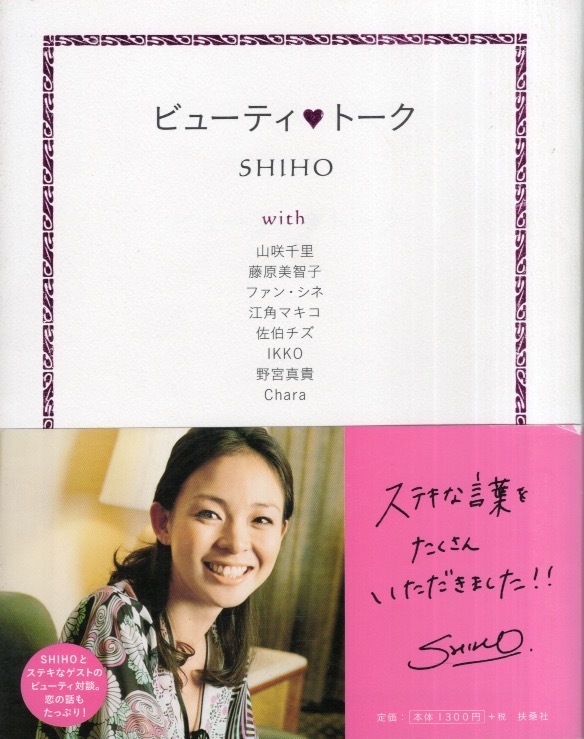 ビューティ♥トーク
SHIHO
with
山咲千里
藤原美智子
ファン・シネ
江角マキコ
佐伯チズ
IKKO
野宮真貴
Chara
ステキな言葉を
たくさん
いただきました!!
SHIHO.
SHIHOと
ステキなゲストの
ビューティ対談。
恋の話も
たっぷり!
定価：本体1300円+税 扶桑社